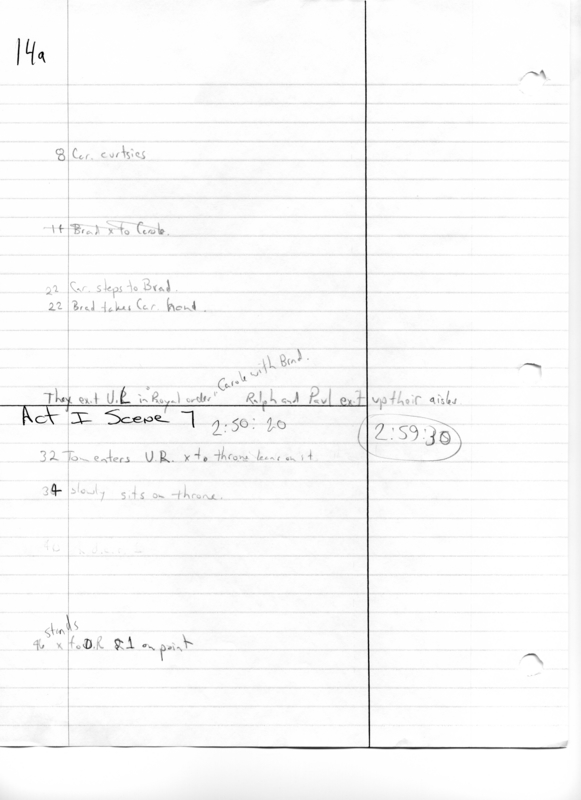 14a
8 Car. curtsies
14 Brad x to Carole.
22 Car. steps to Brad.
22 Brad takes Car. hand.
Carole with Brad.
They exit U.L in "Royal order" Ralph and Paul exit up their aisles
Act I Scene 7 2:50:20 2:59:30
32 Tom enters U.R. x to throne leans on it.
34 slowly sits on throne.
stands
46 x to D.R. 1 on point